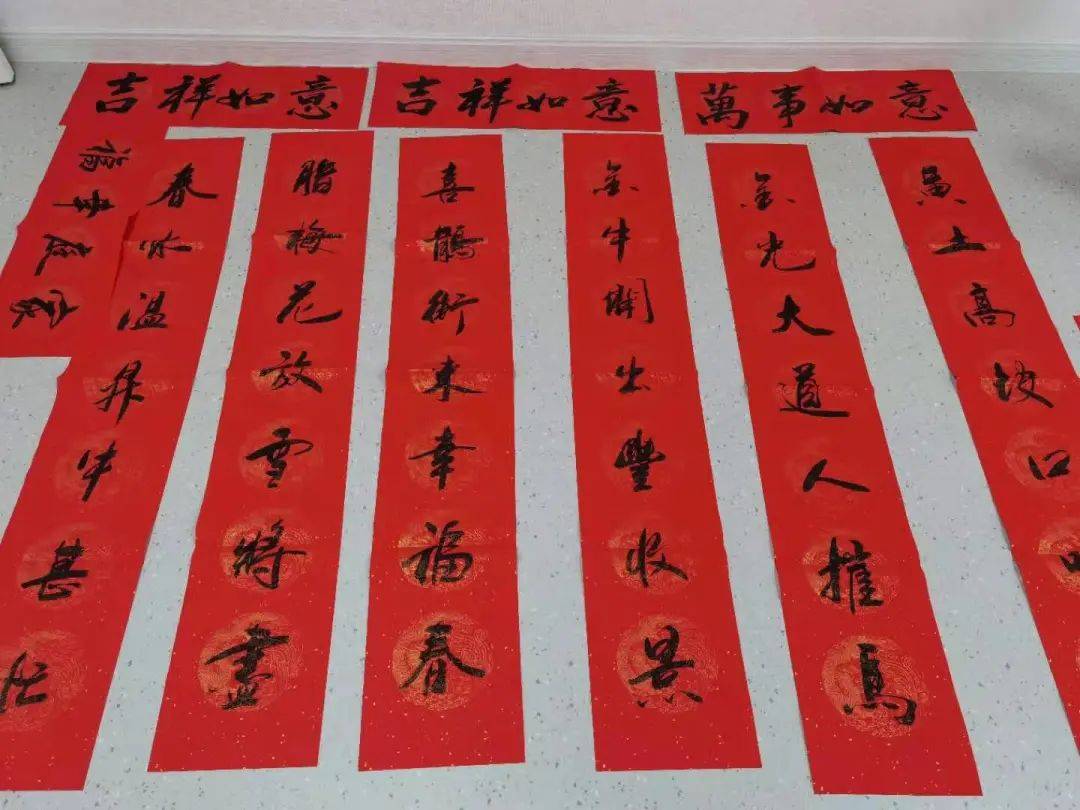 吉祥如意
吉祥如意
萬事如意
春水温
牛甚
腊梅花放雪將盡
喜鵲銜来幸福春
金牛開出豐收景
金光大道人摧馬
黄土高坡口